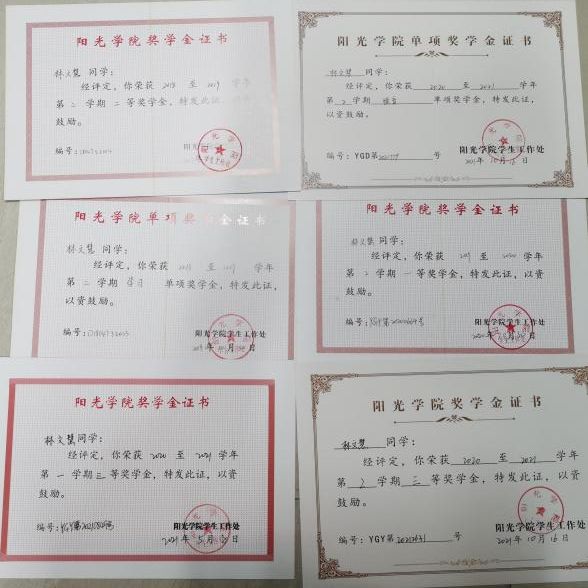 阳光学院奖学金证书
林文慧 同学：
经评定，你荣获 2018 至 2019 学年
第 二 学期 二 等奖学金，特发此证，
鼓励。
编号：
阳光学院单项奖学金证书
林文慧 同学：
经评定，你荣获 2020 至 2021 学年
第 2 学期 单项奖学金，特发此证，
以资鼓励。
编号：YGD第 号
阳光学院学生工作处
2021年 10 月 16 日
阳光学院单项奖学金证书
林文慧 同学：
经评定，你荣获 2018 至 2019 学年
第 二 学期 单项奖学金，特发此证，
以资鼓励。
编号：
阳光学院学生工作处
2019 年 月 日
阳光学院奖学金证书
林文慧 同学：
经评定，你荣获 2019 至 2020 学年
第 2 学期 一 等奖学金，特发此证，以资
鼓励。
编号：
阳光学院学生工作处
2020 年 月 日
阳光学院奖学金证书
林文慧同学：
经评定，你荣获 2020 至 2021 学年
第 一 学期 三 等奖学金，特发此证，以资
鼓励。
编号：
阳光学院学生工作处
2021 年 5 月 日
阳光学院奖学金证书
林文慧 同学：
经评定，你荣获 2020 至 2021 学年
第 2 学期 三 等奖学金，特发此证，以资
鼓励。
编号：YGY第 号
阳光学院学生工作处
2021 年 10 月 16 日